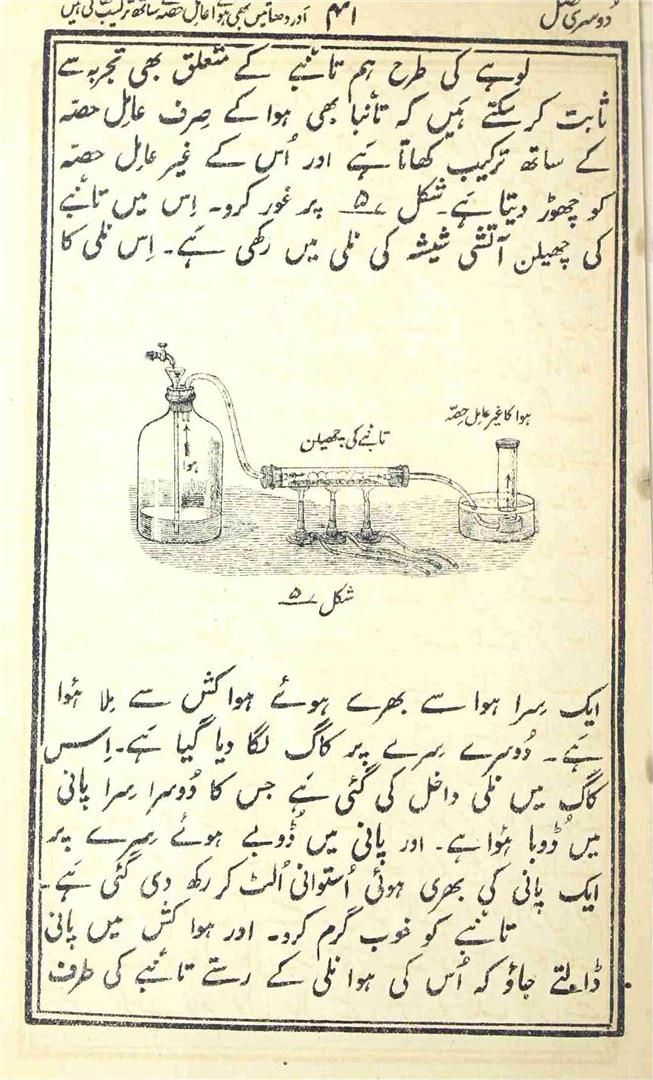 دُوسری فصل ۴۱ اَور دھاتیں بھی ہوا عامل حصّہ کے ساتھ ترکیب کھاتی ہیں
لوہے کی طرح ہم تانبے کے متعلق بھی تجربہ سے
ثابت کر سکتے ہَیں کہ تانبا بھی ہوا کے صِرف عاملِ حصّہ
کے ساتھ ترکیب کھاتا ہَے اور اُس کے غیر عامل حصّہ
کو چھوڑ دیتا ہَے۔ شکل ۵ پر غور کرو۔ اِس میں تانبے
کی چھیلن آتشی شیشہ کی نلی میں رکھی ہَے۔ اِس نلی کا
ہوا کا غیر عامل حِصّہ
تانبے کی چھیلن
ہوا
شکل ۵
ایک سِرا ہوا سے بھرے ہوئے ہوا کش سے مِلا ہُوا
ہَے۔ دُوسرے سِرے پر کاگ لگا دیا گیا ہَے۔ اِس
کاگ میں نلی داخل کی گئی ہَے جس کا دُوسرا سِرا پانی
میں ڈُوبا ہُوا ہے۔ اور پانی میں ڈُوبے ہوئے سِرے پر
ایک پانی کی بھری ہوئی اُستوانی اُلٹ کر رکھ دی گئی ہَے۔
تانبے کو خوب گرم کرو۔ اور ہوا کش میں پانی
ڈالتے جاؤ کہ اُس کی ہوا نلی کے رستے تانبے کی طرف